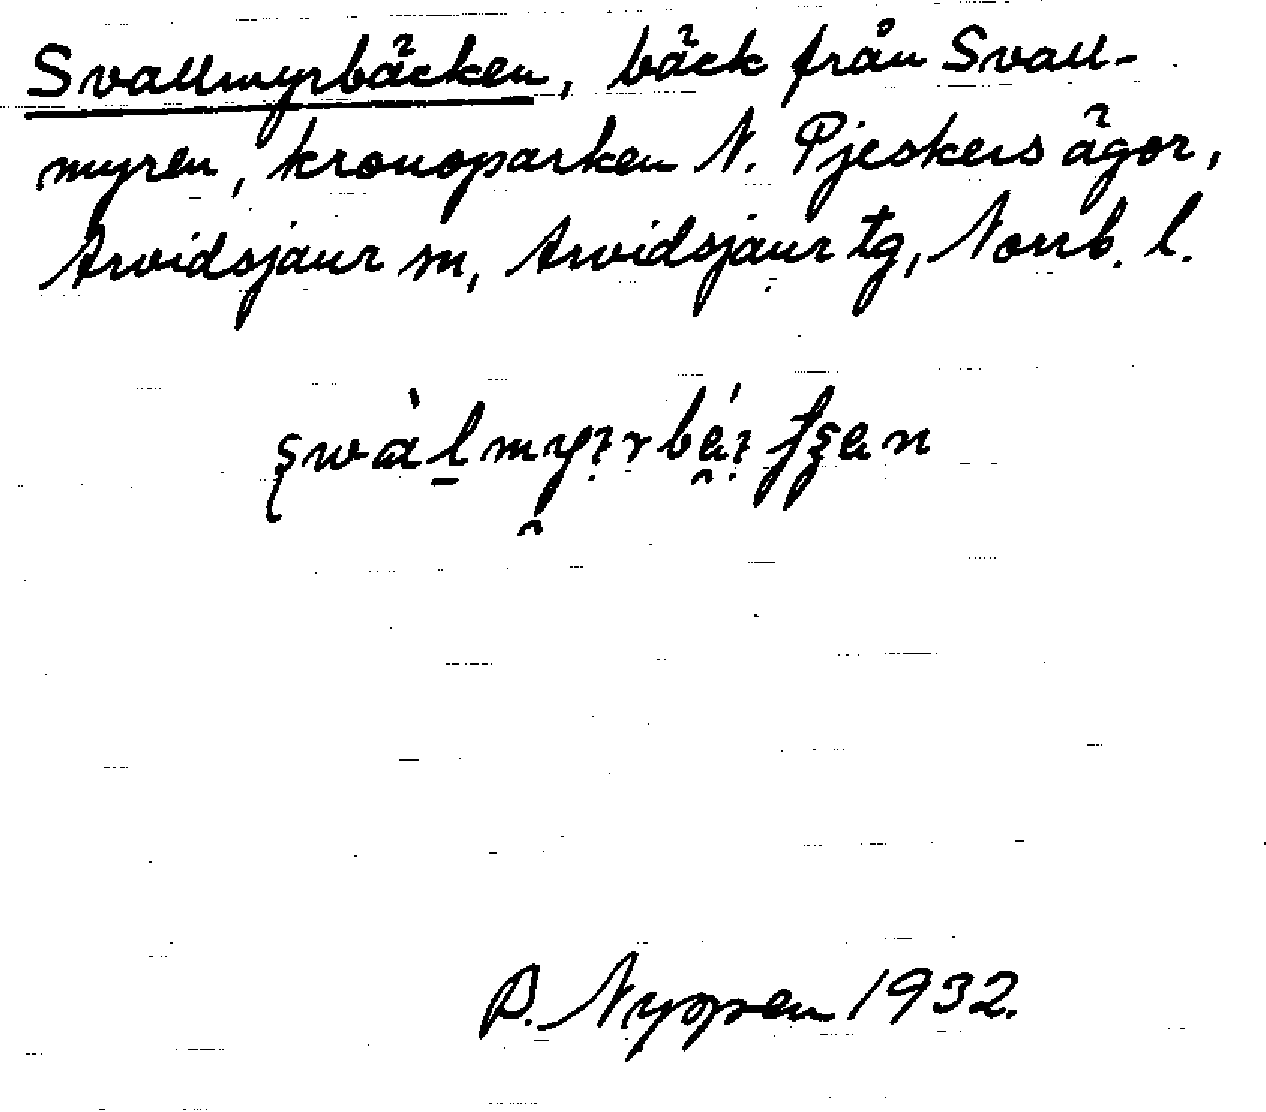 Svallmyrbäcken, bäck från Svall-
myren, kronoparken N. Pjeskers ägor,
Arvidsjaur sn, Arvidsjaur tg, Norrb. l.
P. Nyppen 1932.